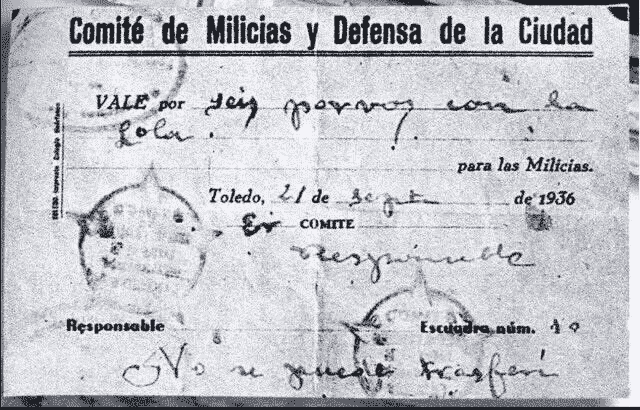 Comité de Milicias y Defensa de la Ciudad
VALE por seis porvos con la
Lola.
para las Milicias.
Toledo, 21 de sept de 1936
El COMITE
Responsable
Responsable Escuadra núm. 10
No se puede trasferi